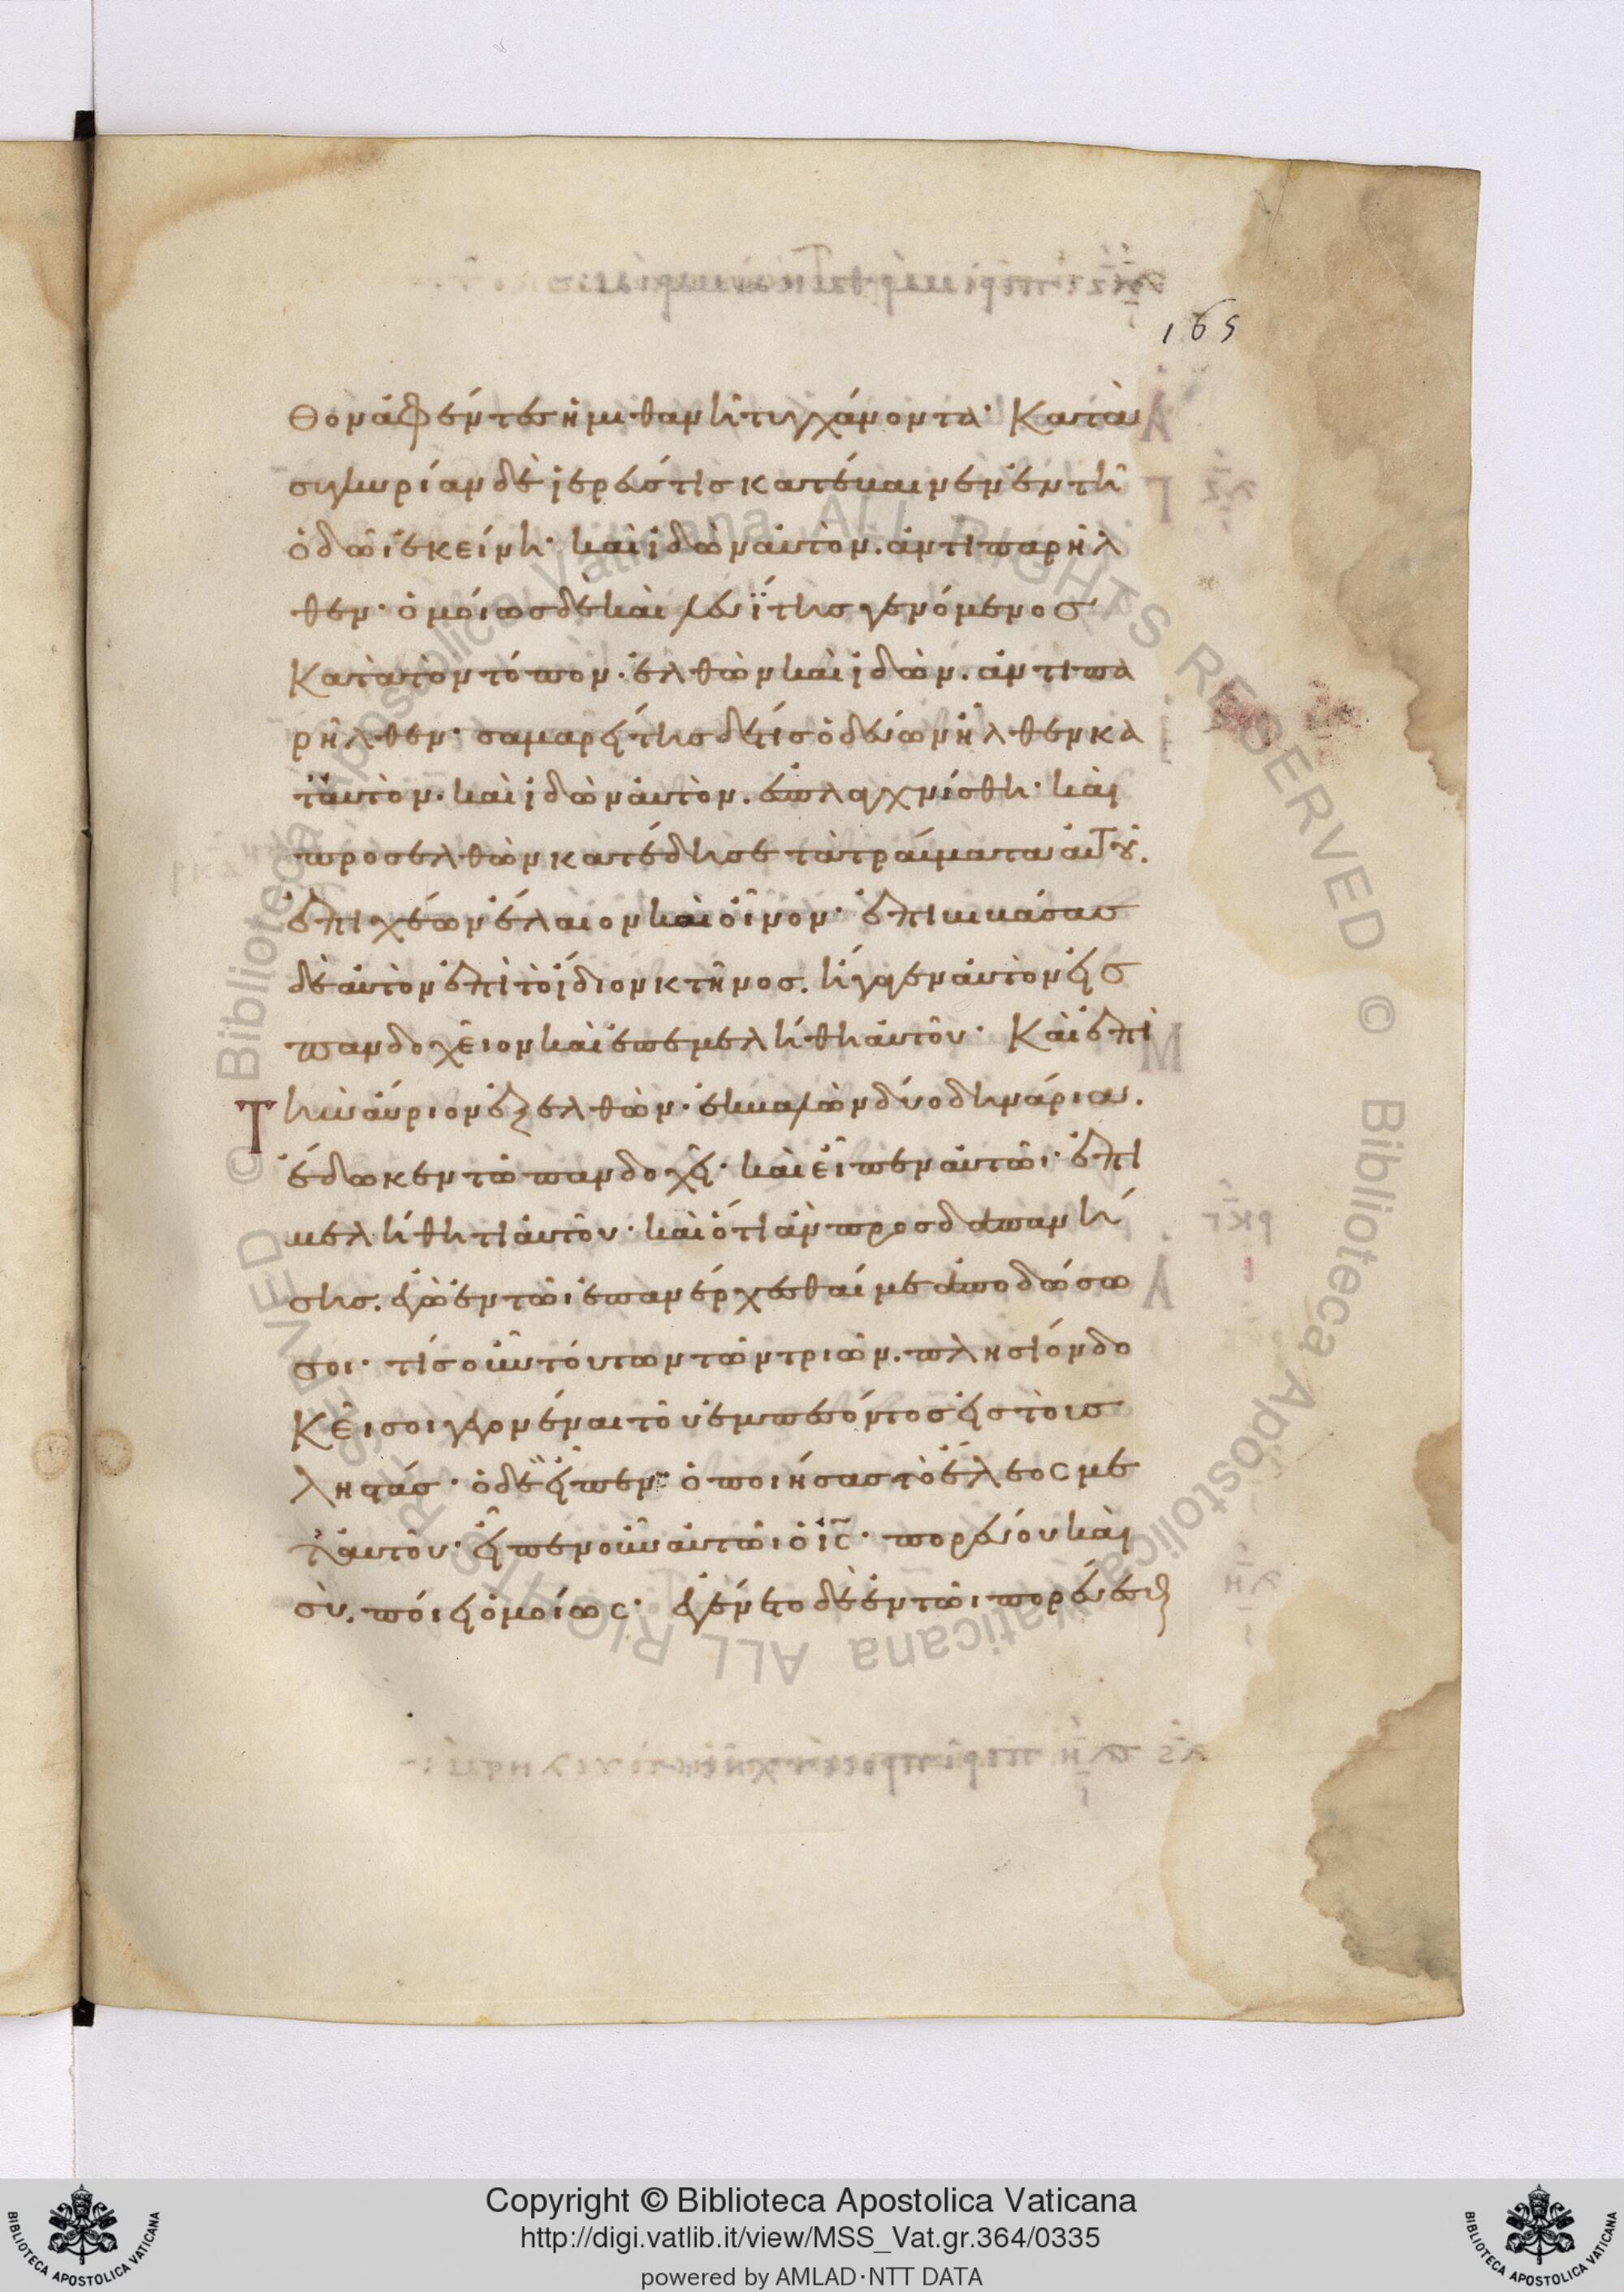 165
θον ἀφέντες ἡμιθανῆ τυγχάνοντα· Κατὰ
συγκυρίαν δὲ ἱερεύς τις κατέβαινεν ἐν τῆ
ὁδῶι ἐκείνη· καὶ ἰδὼν αὐτὸν. ἀντιπαρῆλ
θεν· ὁμοίως δὲ καὶ λευΐτης γενόμενος
Κατὰ τὸν τόπον. ἐλθὼν καὶ ἰδὼν. ἀντιπα
ρῆλθεν· σαμαρείτης δέ τις ὁδεύων ἦλθεν κα
τ' αὐτὸν. καὶ ἰδὼν αὐτὸν. ἐσπλαγχνίσθη· καὶ
προσελθὼν κατέδησε τὰ τραύματα αὐτοῦ.
ἐπιχέων ἔλαιον καὶ οἶνον· ἐπιβιβάσας
δὲ αὐτὸν ἐπὶ τὸ ἴδιον κτῆνος. ἤγαγεν αὐτὸν εἰς
πανδοχεῖον καὶ ἐπεμελήθη αὐτοῦ· Καὶ ἐπὶ
Τὴν αὔριον ἐξελθὼν. ἐκβαλὼν δύο δηνάρια.
ἔδωκεν τῶ πανδοχεῖ· καὶ εἶπεν αὐτῶι· ἐπι
μελήθητι αὐτοῦ· καὶ ὅτι ἂν προσδαπανή
σης. ἐγὼ ἐν τῶι ἐπανέρχεσθαί με ἀποδώσω
σοι· τίς οὖν τούτων τῶν τριῶν. πλησίον δο
Κεῖ σοι γεγονέναι τοῦ ἐμπεσόντος εἰς τοὺς
ληστάς· ὁ δὲ εἶπεν· ὁ ποιήσας τὸ ἔλεος με
τ' αὐτοῦ· εἶπεν οὖν αὐτῶι ὁ ις· πορεύου καὶ
σὺ. ποίει ὁμοίως· ἐγένετο δὲ ἐν τῶι πορεύεσθαι
© Biblioteca Apostolica Vaticana ALL RIGHTS RESERVED © Biblioteca Apostolica Vaticana ALL RIGHTS RESERVED
BIBLIOTECA APOSTOLICA VATICANA
Copyright © Biblioteca Apostolica Vaticana
http://digi.vatlib.it/view/MSS_Vat.gr.364/0335
powered by AMLAD·NTT DATA
BIBLIOTECA APOSTOLICA VATICANA